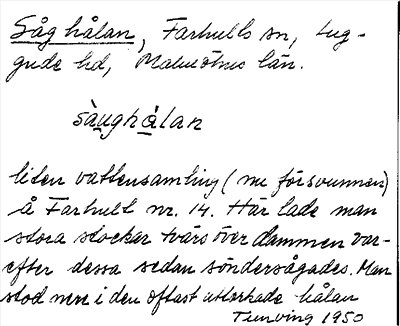 Såghålan, Farhults sn, Lug-
gude hd, Malmöhus län.
sàughålan
liten vattensamling (nu försvunnen)
å Farhult nr. 14. Här lade man
stora stockar tvärs över dammen var-
efter dessa sedan söndersågades. Man
stod nere i den oftast uttorkade hålan
Tunving 1950